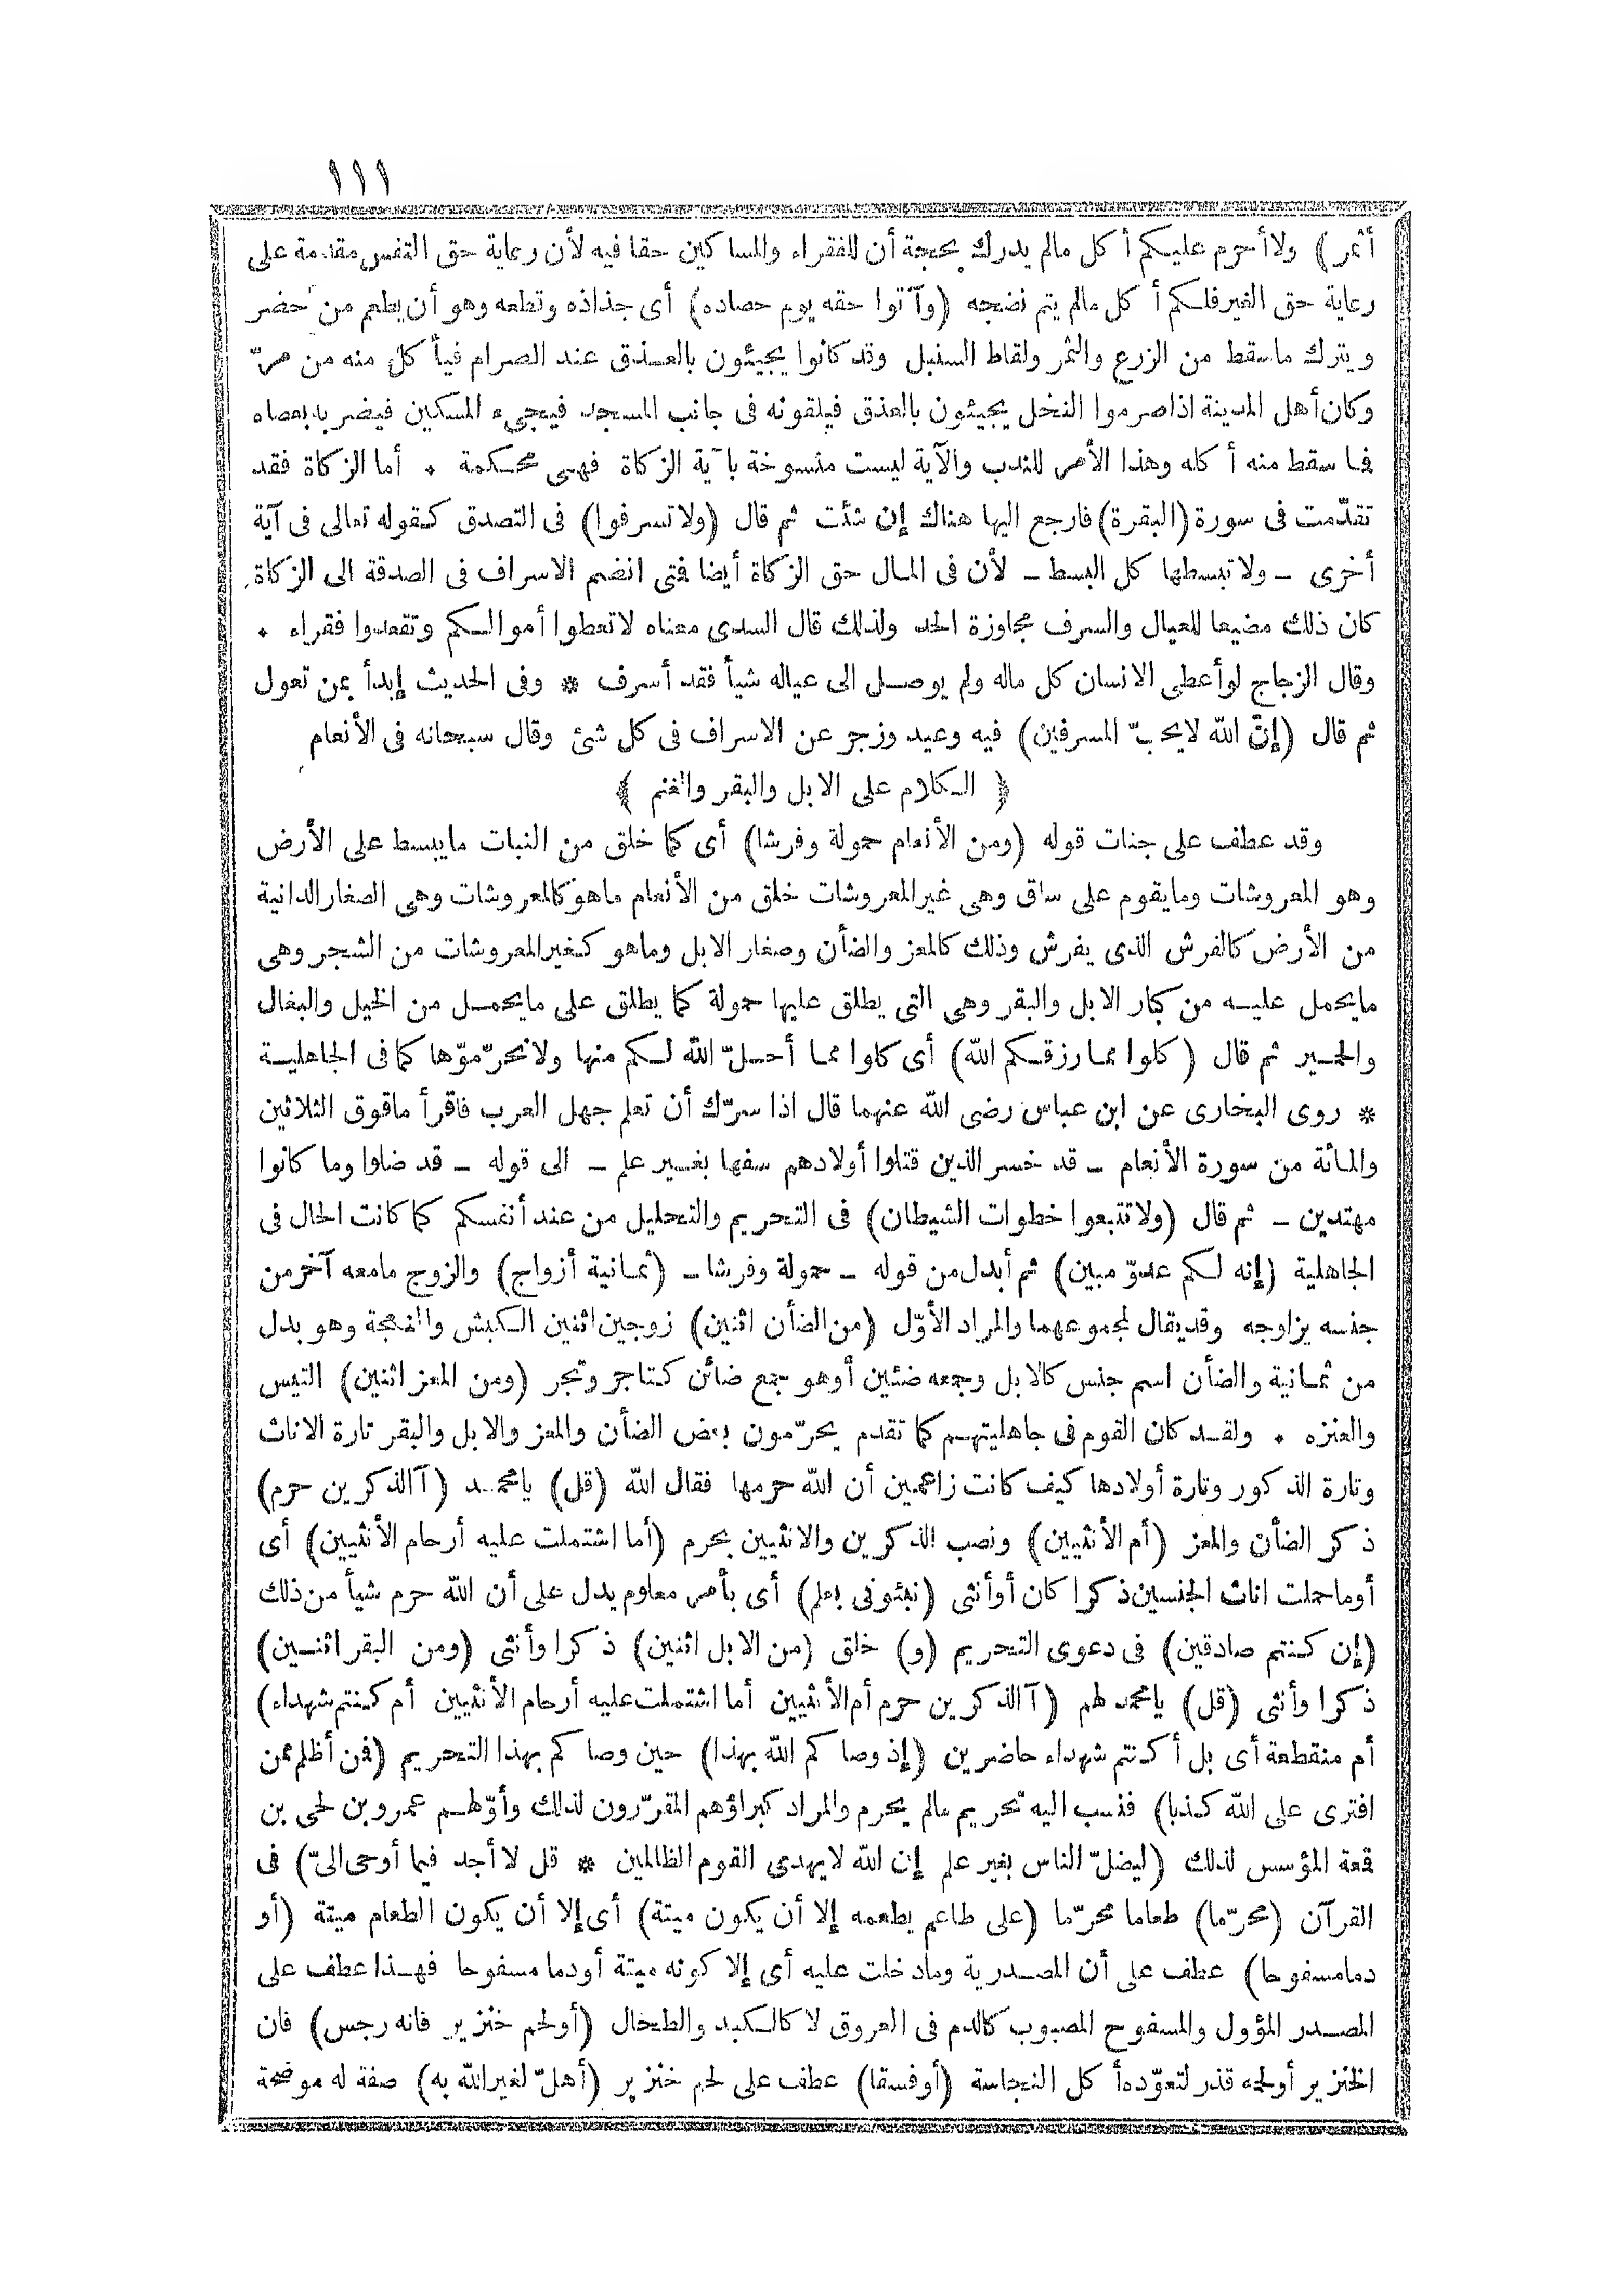 ١١١
أثمر) ولا أحرم عليكم أكل مالم يدرك بحجة أن للفقراء والمساكين حقا فيه لأن رعاية حق النفس مقدمة على
رعاية حق الغير فلكم أكل مالم يتم نضجه (وآتوا حقه يوم حصاده) أى جذاذه وقطعه وهو أن يطعم من حضر
ويترك ماسقط من الزرع والثمر ولقاط السنبل وقد كانوا يجيئون بالعذق عند الصرام فيأكل منه من مرّ
وكان أهل المدينة اذا صرموا النخل يجيئون بالعذق فيلقونه فى جانب المسجد فيجىء المسكين فيضربه بعصاه
فما سقط منه أكله وهذا الأمر للندب والآية ليست منسوخة بآية الزكاة فهى محكمة . أما الزكاة فقد
تقدّمت فى سورة (البقرة) فارجع اليها هناك إن شئت ثم قال (ولا تسرفوا) فى التصدق كقوله تعالى فى آية
أخرى - ولا تبسطها كل البسط - لأن فى المال حق الزكاة أيضا فمتى انضم الاسراف فى الصدقة الى الزكاة
كان ذلك مضيعا للعيال والسرف مجاوزة الحد ولذلك قال السدى معناه لا تعطوا أموالكم وتقعدوا فقراء .
وقال الزجاج لو أعطى الانسان كل ماله ولم يوصل الى عياله شيأ فقد أسرف * وفى الحديث إبدأ بمن تعول
ثم قال (إنّ الله لايحبّ المسرفين) فيه وعيد وزجر عن الاسراف فى كل شئ وقال سبحانه فى الأنعام
﴿ الكلام على الابل والبقر والغنم ﴾
وقد عطف على جنات قوله (ومن الأنعام حمولة وفرشا) أى كما خلق من النبات ماينبسط على الأرض
وهو المعروشات ومايقوم على ساق وهى غير المعروشات خلق من الأنعام ماهو كالمعروشات وهى الصغار الدانية
من الأرض كالفرش الذى يفرش وذلك كالمعز والضأن وصغار الابل وماهو كغير المعروشات من الشجر وهى
مايحمل عليه من كبار الابل والبقر وهى التى يطلق عليها حمولة كما يطلق على مايحمل من الخيل والبغال
والحمير ثم قال (كلوا مما رزقكم الله) أى كلوا مما أحلّ الله لكم منها ولا تحرّموّها كما فى الجاهلية
* روى البخارى عن ابن عباس رضى الله عنهما قال اذا سرّك أن تعلم جهل العرب فاقرأ مافوق الثلاثين
والمائة من سورة الأنعام - قد خسر الذين قتلوا أولادهم سفها بغير علم - الى قوله - قد ضلوا وما كانوا
مهتدين - ثم قال (ولا تتبعوا خطوات الشيطان) فى التحريم والتحليل من عند أنفسكم كما كانت الحال فى
الجاهلية (إنه لكم عدوّ مبين) ثم أبدل من قوله - حمولة وفرشا - (ثمانية أزواج) والزوج مامعه آخر من
جنسه يزاوجه وقد يقال لمجموعهما والمراد الأوّل (من الضأن اثنين) زوجين اثنين الكبش والنعجة وهو بدل
من ثمانية والضأن اسم جنس كالابل وجمعه ضئين أو هو جمع ضائن كتاجر وتجر (ومن المعز اثنين) التيس
والعنزه . ولقد كان القوم فى جاهليتهم كما تقدم يحرّمون بعض الضأن والمعز والابل والبقر تارة الاناث
وتارة الذكور وتارة أولادها كيف كانت زاعمين أن الله حرمها فقال الله (قل) يا محمد (آلذكرين حرم)
ذكر الضأن والمعز (أم الأنثيين) ونصب الذكرين والانثيين بحرم (أما اشتملت عليه أرحام الأنثيين) أى
أوما حملت اناث الجنسين ذكرا كان أو أنثى (نبئونى بعلم) أى بأمر معلوم يدل على أن الله حرم شيأ من ذلك
(إن كنتم صادقين) فى دعوى التحريم (و) خلق (من الابل اثنين) ذكرا وأنثى (ومن البقر اثنين)
ذكرا وأنثى (قل) يا محمد لهم (آلذكرين حرم أم الأنثيين أما اشتملت عليه أرحام الأنثيين أم كنتم شهداء)
أم منقطعة أى بل أكنتم شهداء حاضرين (إذ وصاكم الله بهذا) حين وصاكم بهذا التحريم (فمن أظلم ممن
افترى على الله كذبا) فنسب اليه تحريم مالم يحرم والمراد كبراؤهم المقرّرون لذلك وأوّلهم عمرو بن لحى بن
قمعة المؤسس لذلك (ليضلّ الناس بغير علم إن الله لايهدى القوم الظالمين * قل لا أجد فيما أوحى الىّ) فى
القرآن (محرّما) طعاما محرّما (على طاعم يطعمه إلا أن يكون ميتة) أى إلا أن يكون الطعام ميتة (أو
دما مسفوحا) عطف على أن المصدرية ومادخلت عليه أى إلا كونه ميتة أو دما مسفوحا فهذا عطف على
المصدر المؤول والمسفوح المصبوب كالدم فى العروق لا كالكبد والطحال (أولحم خنزير فانه رجس) فان
الخنزير أولحمه قذر لتعوّده أكل النجاسة (أو فسقا) عطف على لحم خنزير (أهلّ لغير الله به) صفة له موضحة